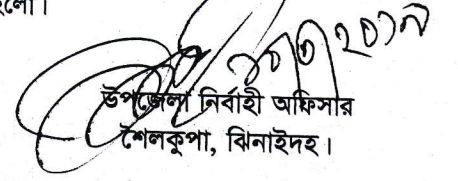 হলো।
উপজেলা নির্বাহী অফিসার
শৈলকুপা, ঝিনাইদহ।